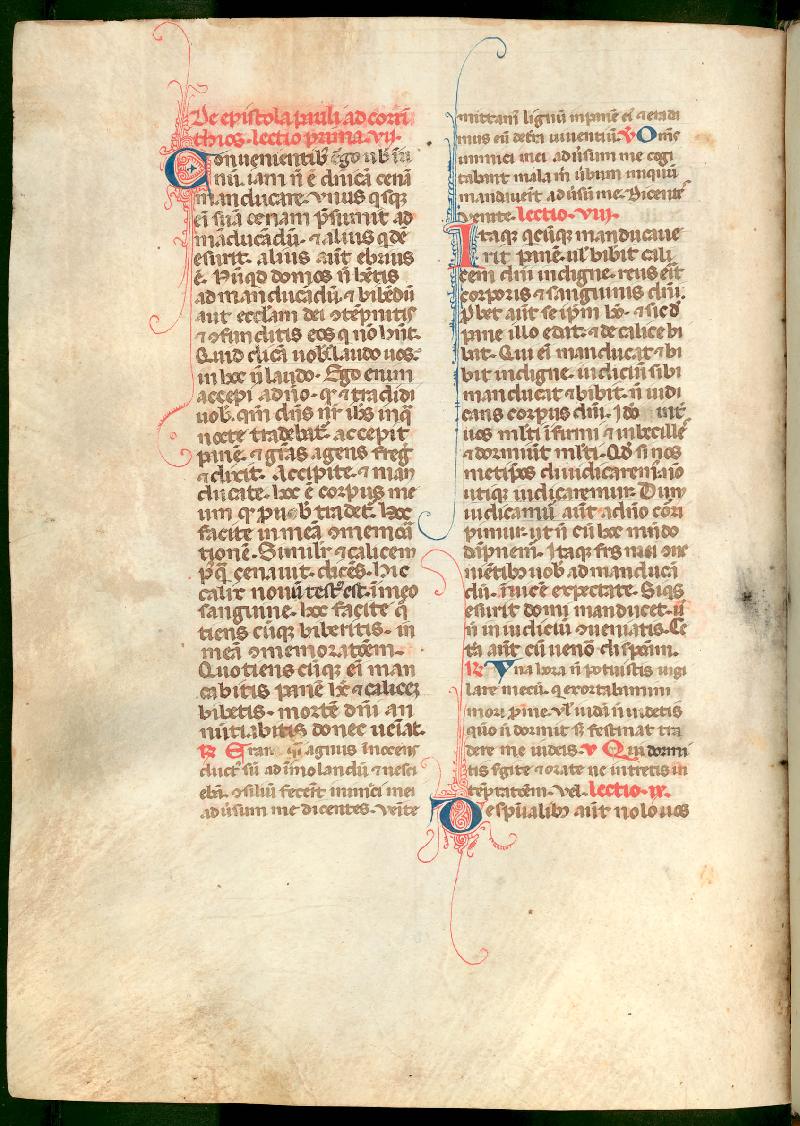 De epistola pauli ad corin
thios. lectio prima. vij.
Conuenientib᷒ ĝo uob in
nū. iam n̄ ē dn̄icā cenā
manducare. vnus qsq̄
ei suā cenam p̄sumit ad
māducādū. ⁊ alius qdē
esurit. alius aūt ebrius
ē. Nūqd domos n̄ hētis
ad manducādū ⁊ bibēdū
aut eccl̄am dei ↄtēpnitis
⁊ ↄfunditis eos q nō hn̄t.
Quid dicā uob᷒. laudo uos.
in hoc n̄ laudo. Ego enim
accepi a dn̄o. qđ ⁊ tradidi
uob. qm̄ dn̄s nr̄ ih̄s in q̄
nocte tradebat᷑. accepit
panē. ⁊ gr̄as agens freg᷑
⁊ dixit. Accipite. ⁊ man
ducate. hoc ē corpus me
um qđ ꝓ uob tradet᷑. hoc
facite in meā ↄmemora
tionē. Similr̄ ⁊ calicem
p̄q̄ cenauit. dicēs. hic
calix nouū test᷒ est. ī meo
sanguine. hoc facite q̄
tiens cūq̄ biberitis. in
meā ↄmemoratōem.
Quotiens cūq̄ ei man
cabitis panē hc̄ ⁊ calicez
bibetis. mortē dn̄i an
nūtiabitis donec ueīat.
R Eram q̄i agnus inocens
duct᷒ sū ad īmolandū ⁊ nesci
ebā. ↄsiliū fecer̄t inimici mei
aduisum me dicentes. venite
mittam᷒ lignū in panē ei᷒ ⁊ eradi
mus eū de tr̄a uiuentiū. V Om̄s
inimici mei aduisum me cogi
tabant mala m̄ uerbum iniquū
mandauer̄t aduisū me. Dicente᷒
venite. lectio. viij.
Itaq̄ qcūq̄ manducaue
rit panē. ul̄ bibit cali
cem dn̄i indigne. reus erit
corporis ⁊ sanguinis dn̄i.
Ꝓbet aūt se ip̄m hō. ⁊ sic d̄
pane illo edat. ⁊ de calice bi
bat. Qui ei manducat ⁊ bi
bit indigne. iudiciū sibi
manducat ⁊ bibit. n̄ iudi
cans corpus dn̄i. Ido int᷑
uos ml̄ti īfirmi ⁊ imbecille᷒
⁊ dormiūt ml̄ti. Qđ si nos
metip̄os diiudicarem᷒. nō
utiq̄ iudicaremur. Dum
iudicamur aūt a dn̄o cori
pimur. ut n̄ cū hoc mūdo
dāpnem᷒. Itaq̄ frs̄ mei ↄue
niētib᷒ uob ad manducā
dū. īuicē expectate. Siqs
esurit domi manducet. ut
n̄ in iudiciū ↄueniatis. Ce
t̄a aūt cū uenō disponā.
R Vna hora n̄ potuistis uigi
lare mecū. q exortabamini
mori ꝓ me. Vl̄ iudā n̄ uidetis
quō n̄ dormit s᷒ festinat tra
dere me iudeis. V Quid dormi
tis sgite ⁊ orate ne intretis in
tēptatōem. Vel. lectio. ix.
De spūalib᷒ aūt nolo uos